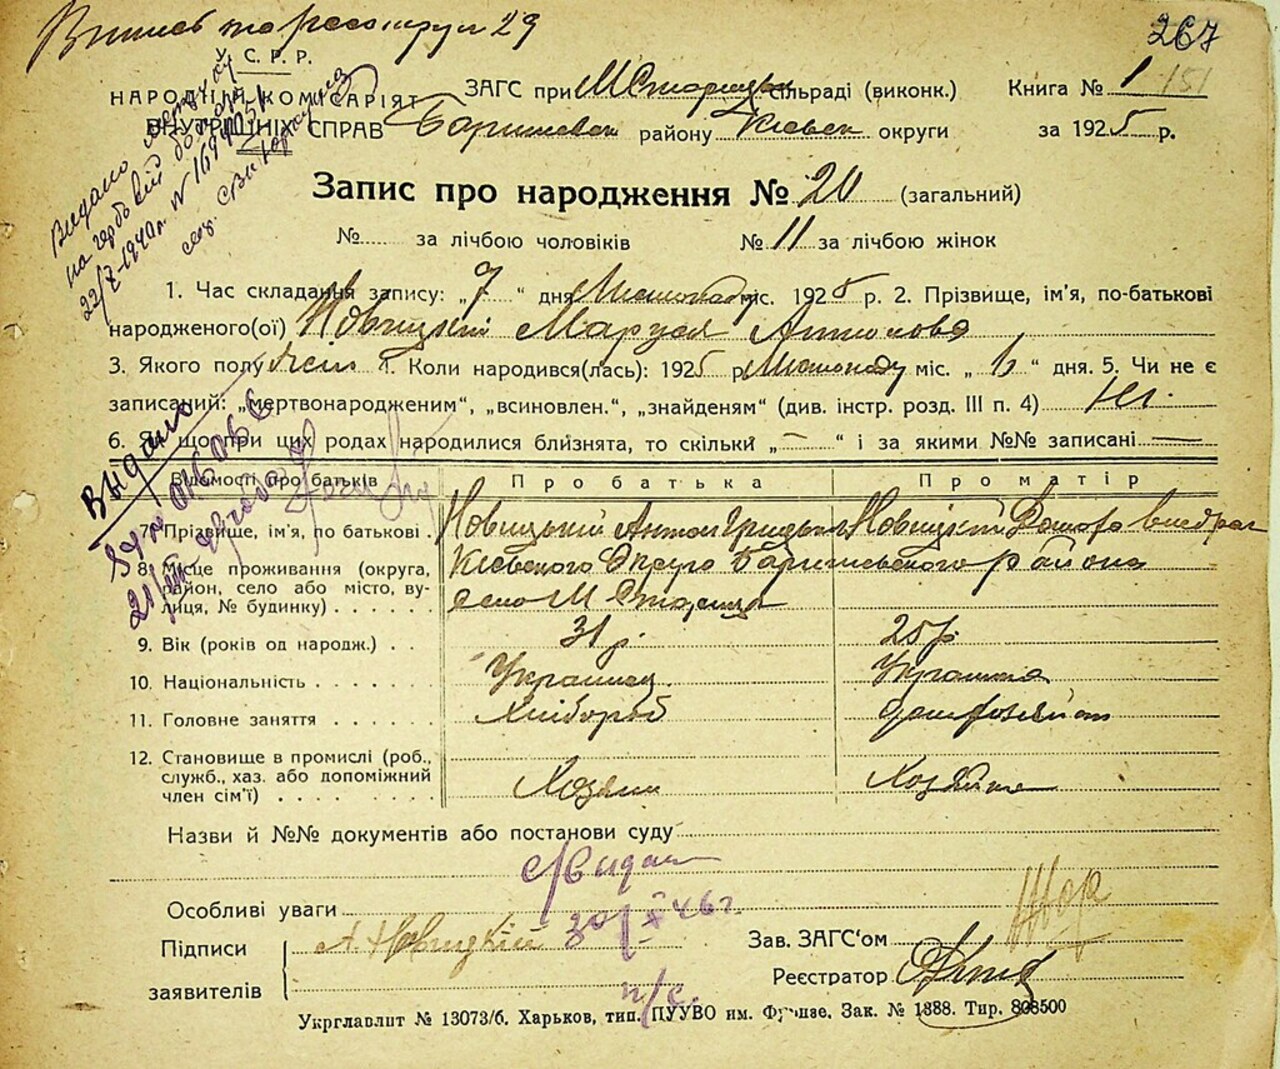 267
У. С. Р. Р.
НАРОДНІЙ КОМІСАРІЯТ
ВНУТРІШНІХ СПРАВ
ЗАГС при М Стариця сільраді (виконк.) Книга № 1 151
Баришевск району Київск округи за 1925 р.
Запис про народження № 20 (загальний)
№ за лічбою чоловіків № 11 за лічбою жінок
1. Час складання запису: „ 7 “ дня міс. 1925 р. 2. Прізвище, ім'я, по-батькові
народженого(ої) Новицкі Маруся Антонова
3. Якого полу жін 4. Коли народився(лась): 1925 р міс. „ 6 “ дня. 5. Чи не є
записаний: „мертвонародженим“, „всиновлен.“, „знайденям“ (див. інстр. розд. III п. 4) Ні.
6. Якщо при цих родах народилися близнята, то скільки „ — “ і за якими №№ записані —
Відомості про батьків Про батька Про матір
7. Прізвище, ім'я, по батькові . Новицький Антон
8. Місце проживання (округа, район, село або місто, вулиця, № будинку) Київского Округа Баришевського района
село М Стариця
9. Вік (років од народж.) . . 31 р. 25 р.
10. Національність Українец. Українка
11. Головне заняття Хлібороб
12. Становище в промислі (роб., служб., хаз. або допоміжний член сім'ї) Хозяин Хозяйка
Назви й №№ документів або постанови суду
Особливі уваги 30/X 46 г.
Підписи А. Новицкий
заявителів п/с.
Зав. ЗАГС'ом
Реєстратор
Укрглавлит № 13073/б. Харьков, тип. ПУУВО им. Фрунзе. Зак. № 1388. Тир. 808500
Видано
22/X-1940 р. №
выдано